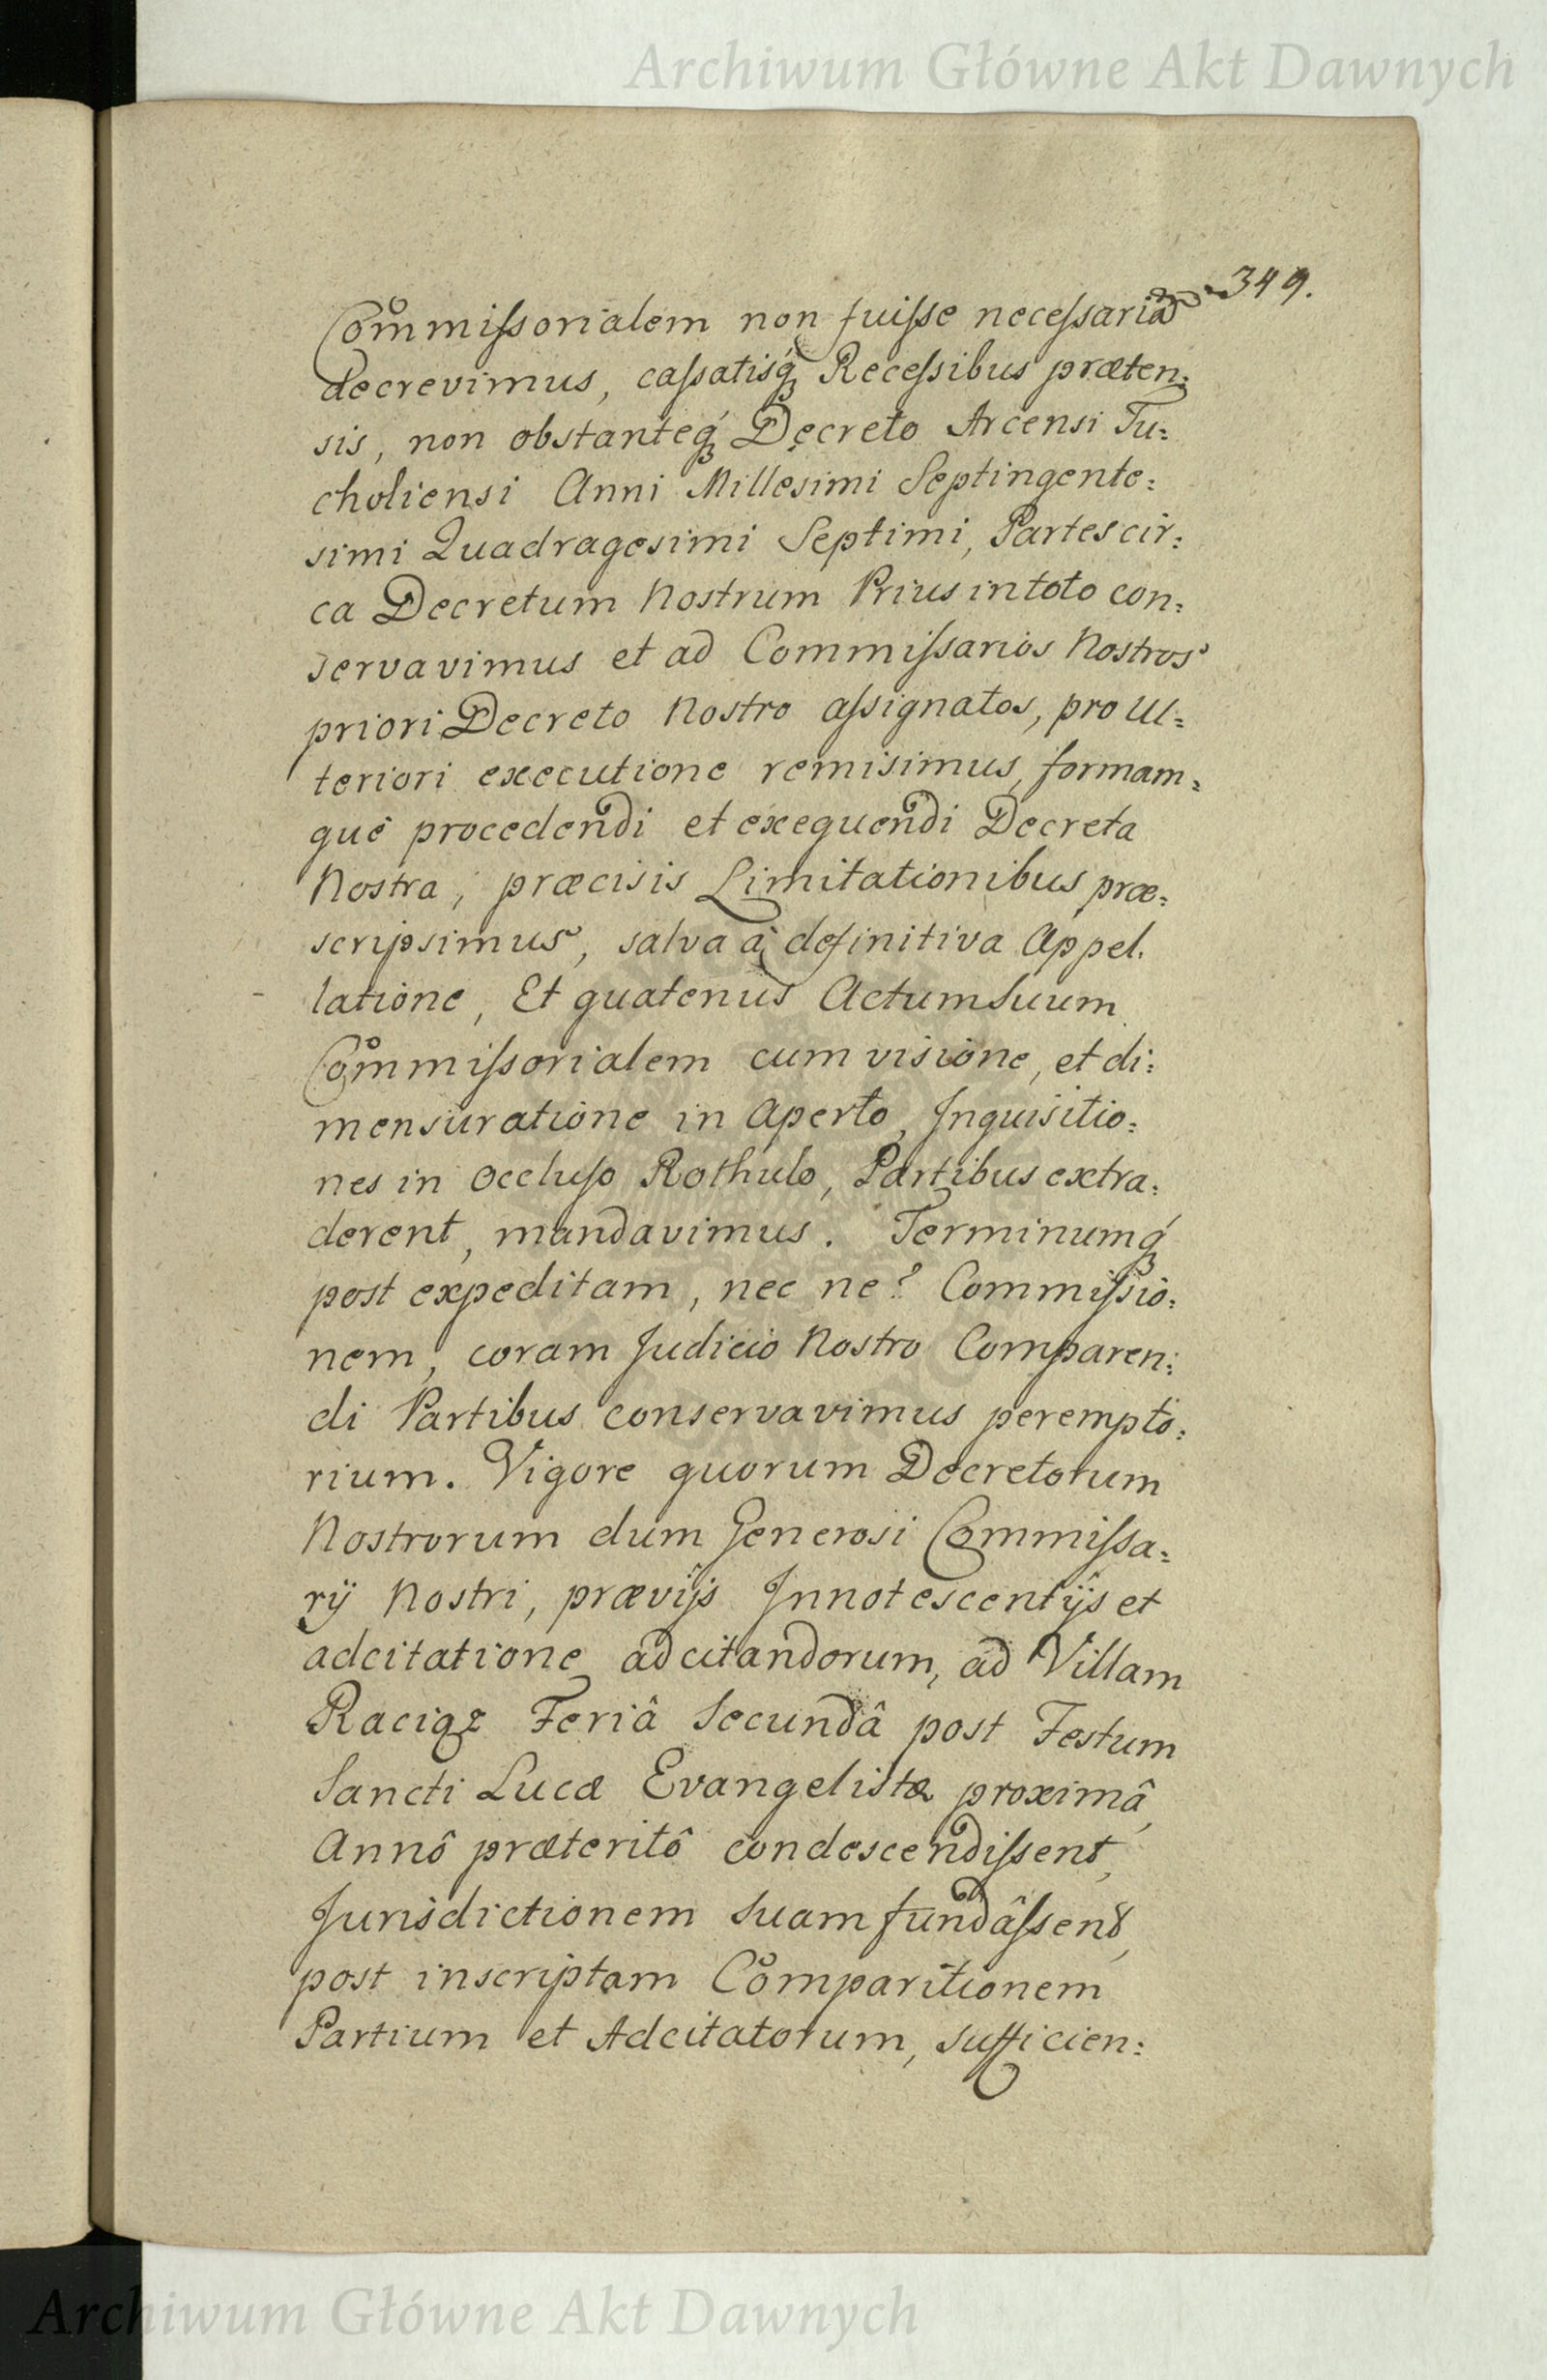 Archiwum Główne Akt Dawnych
349.
Commissorialem non fuisse necessariã
decrevimus, cassatisq́ꝫ Recessibus præten:
sis, non obstanteq́ꝫ Decreto Arcensi Tu:
choliensi Anni Millesimi Septingente:
simi Quadragesimi Septimi, Partes cir:
ca Decretum Nostrum Prius in toto con:
servavimus et ad Commissarios Nostros
priori Decreto Nostro assignatos, pro Ul:
teriori executione remisimus, formam:
què procedendi et exequendi Decreta
Nostra, præcisis Limitationibus præ:
scripsimus, salva à definitiva Appel.
latione, Et quatenus Actum Suum
Commissorialem cum visione, et di:
mensuratione in Aperto, Inquisitio:
nes in Occluso Rothulo, Partibus extra:
derent, mandavimus. Terminumq́ꝫ
post expeditam, nec ne? Commissio:
nem, coram Judicio Nostro Comparen:
di Partibus conservavimus perempto:
rium. Vigore quorum Decretorum
Nostrorum dum Generosi Commissa:
rij Nostri, prævijs Innotescentijs et
adcitatione adcitandorum, ad Villam
Raciąz Feriâ Secundâ post Festum
Sancti Lucæ Evangelistæ proximâ,
Annô præteritô condescendissent,
Jurisdictionem suam fundâssent,
post inscriptam Comparitionem
Partium et Adcitatorum, sufficien:
Archiwum Główne Akt Dawnych